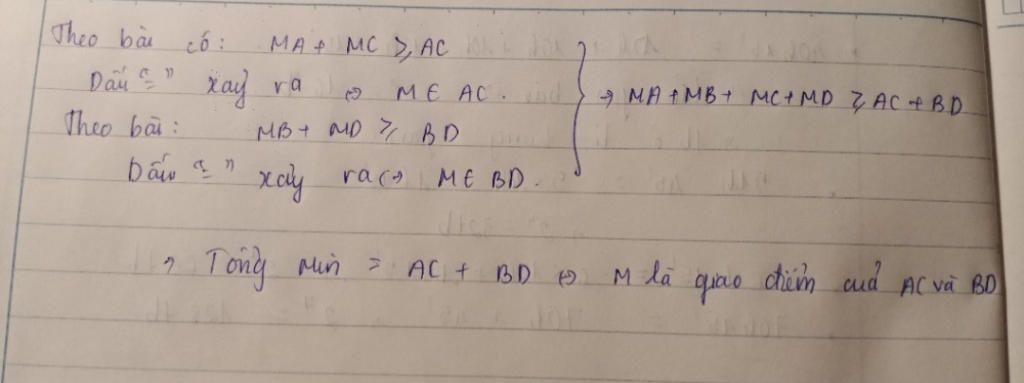 Theo bài có: MA + MC ≥ AC
Dấu "=" xảy ra ⇔ M ∈ AC.
Theo bài: MB + MD ≥ BD
Dấu "=" xảy ra ⇔ M ∈ BD.
→ MA + MB + MC + MD ≥ AC + BD
→ Tổng min = AC + BD ⇔ M là giao điểm của AC và BD